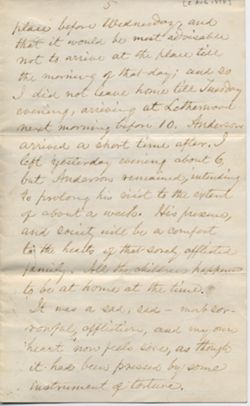 5
place before Wednesday, and
that it would be most advisable
not to arrive at the place till
the morning of that day; and so
I did not leave home till Tuesday
evening, arriving at
next morning before 10. Anderson
arrived a short time after. I
left yesterday evening about 6,
but Anderson remained, intending
to prolong his visit to the extent
of about a week. His presence,
and society will be a comfort
to the hearts of that sorely afflicted
family. All the children happened
to be at home at the time.
It was a sad, sad — most sor-
rowful affliction, and my own
heart now feels sore, as though
it had been pressed by some
instrument of torture.